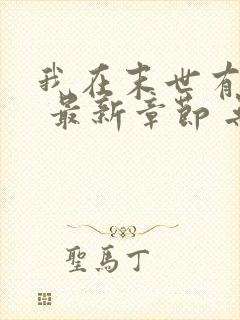 我在末世有
最新章節
聖馬丁